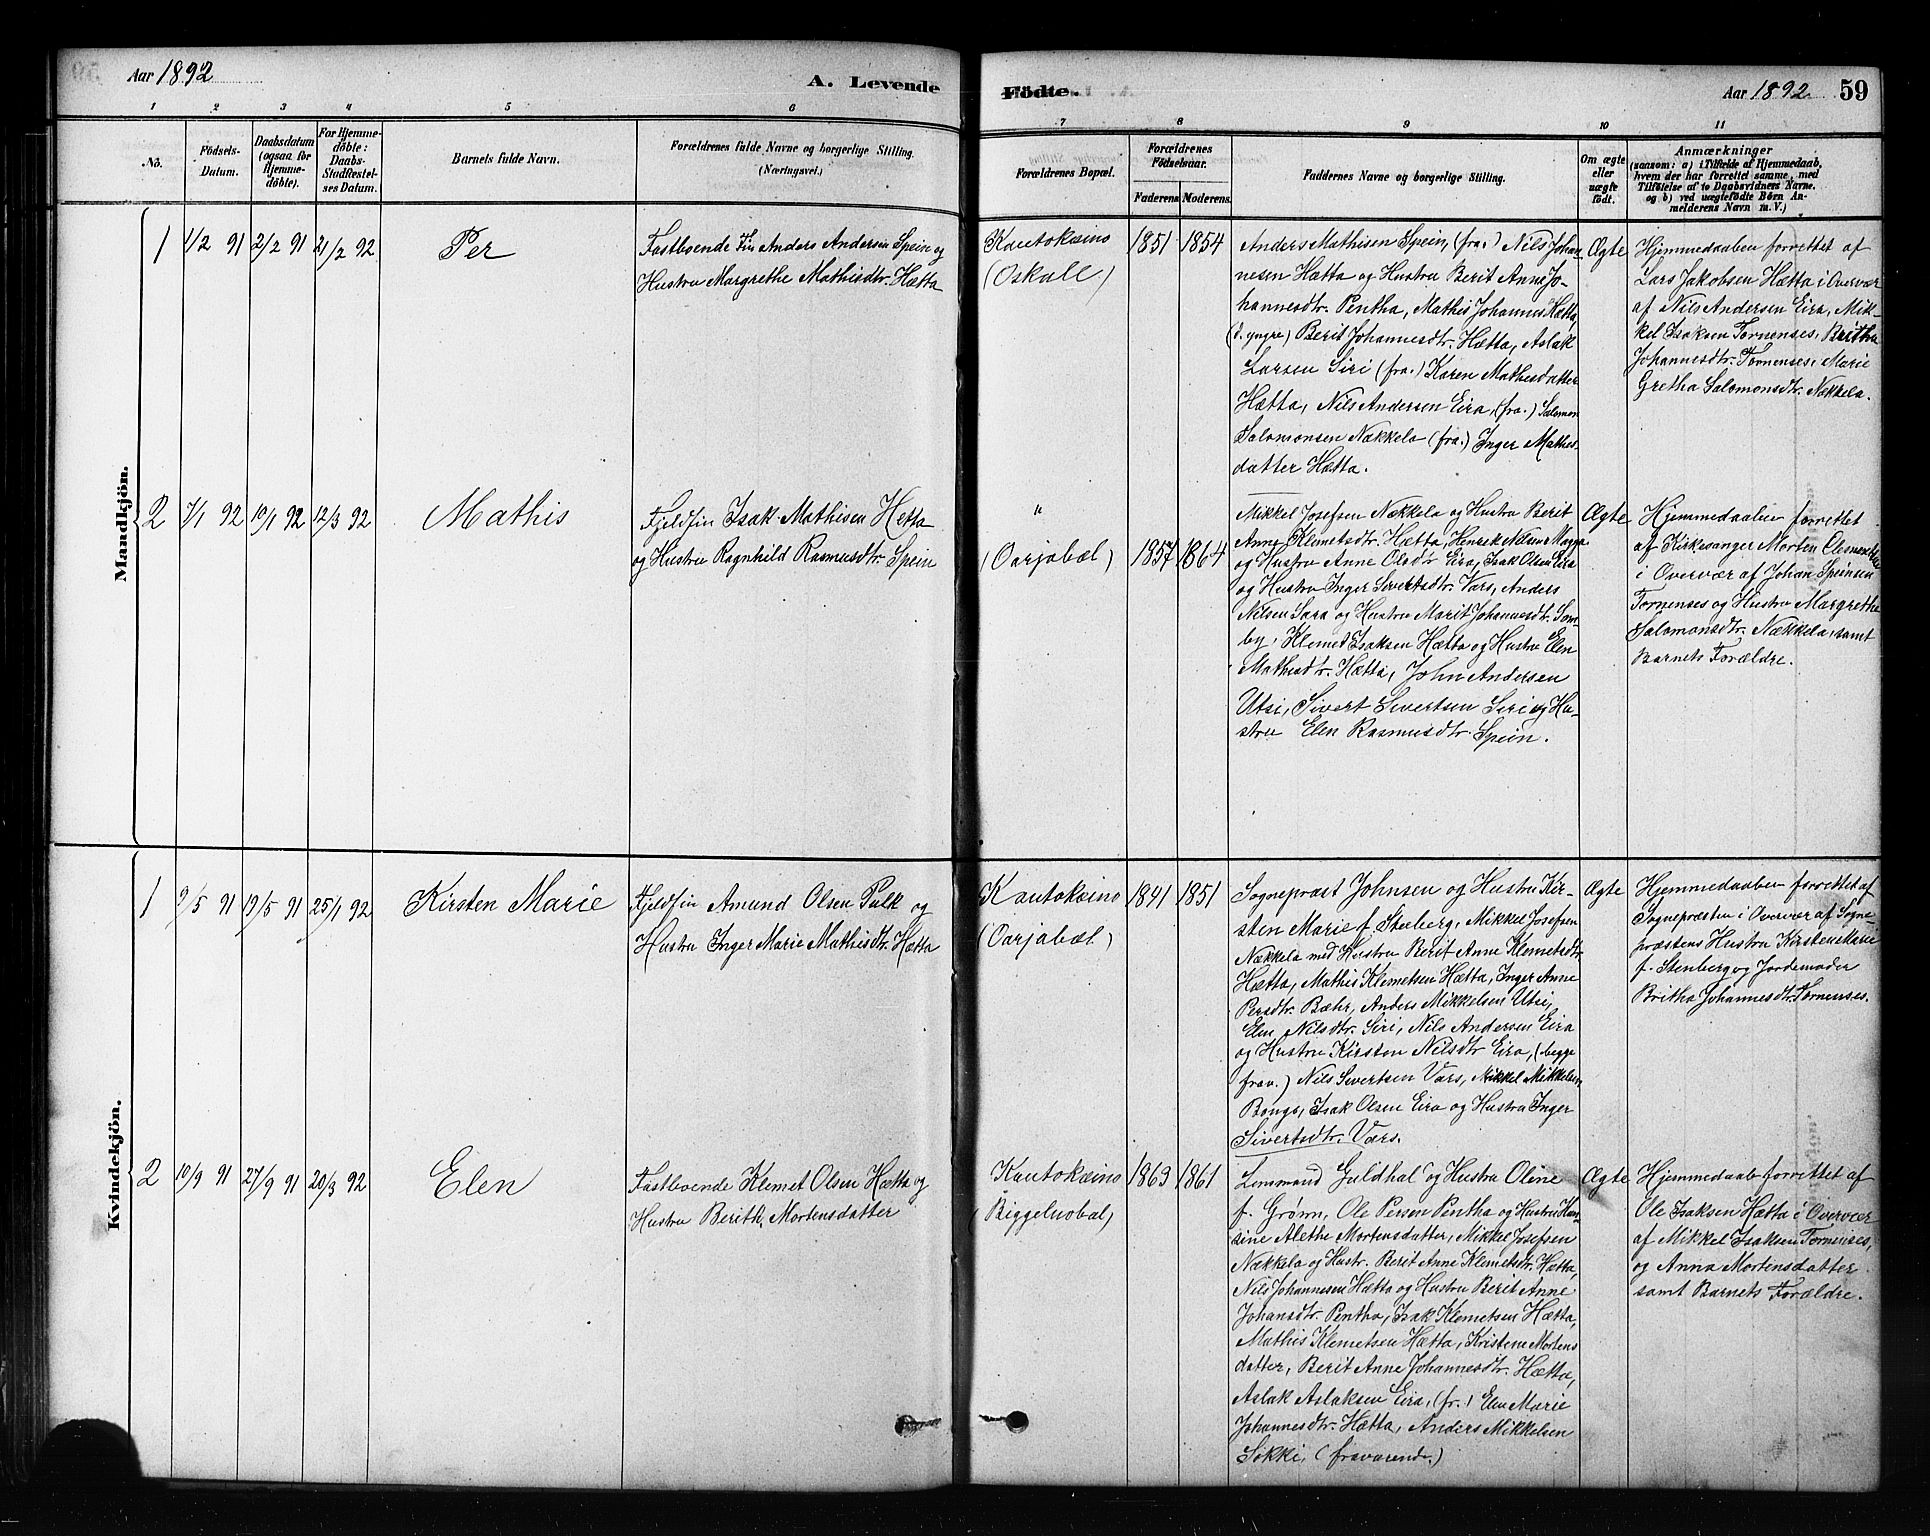 Aar 1892
A. Levende
1 2 3 4 5 6
No.
Födsels-
Datum.
Daabsdatum
(ogsaa for
Hjemme-
döbte).
For Hjemme-
döbte:
Daabs-
Stadfæstel-
ses Datum.
Barnets fulde Navn.
Forældrenes fulde Navne og borgerlige Stilling.
(Næringsvei.)
Mandkjön.
1 1/2 91 2/2 91 21/2 92 Per
Fastboende Fin Anders Andersen Spein og
Hustru Margrethe Mathisdtr. Hætta
2 7/1 92 10/1 92 12/3 92 Mathis
Fjeldfin Isak Mathisen Hetta
og Hustru Ragnhild Rasmusdtr. Spein
Kvindekjön.
1 9/5 91 19/5 91 25/1 92 Kirsten Marie
Fjeldfin Amund Olsen Pulk og
Hustru Inger Marie Mathisdtr. Hætta
2 10/9 91 27/9 91 20/3 92 Elen
Fastboende Klemet Olsen Hætta og
Hustru Berith Mortensdatter
Födte.
Aar 1892 59
7 8 9 10 11
Forældrenes Bopæl.
Forældrenes
Födselsaar.
Faderens Moderens
Faddernes Navne og borgerlige Stilling.
Om ægte
eller
uægte
födt.
Anmærkninger
(saasom: a) i Tilfælde af Hjemmedaab,
hvem der har forrettet samme, med
Tilföielse af to Daabsvidners Navne.
og b) ved uægtefödte Börn An-
melderens Navn m. V.)
Kautokeino
(Oskal)
1851 1854
Anders Mathisen Spein, (fra.) Nils Johan-
nesen Hætta og Hustru Berit Anne Jo-
hannesdtr. Pentha, Mathis Johannes Hætta,
(d. yngre) Berit Johannesdtr. Hætta, Aslak
Larsen Siri (fra.) Karen Mathisdatter
Hætta, Nils Andersen Eira, (fra.) Salomon
Salomonsen Nækkela (fra.) Inger Mathis-
datter Hætta.
Ægte
Hjemmedaaben forrettet af
Lars Jakobsen Hætta i Overvær
af Nils Andersen Eira, Mik-
kel Isaksen Tornenses, Britha
Johannesdtr. Tornenses, Marie
Gretha Salomonsdtr. Nækkela.
"
(Oarjabæl)
1857 1864
Mikkel Josefsen Nækkela og Hustru Berit
Anne Klemetsdtr. Hætta, Henrik Nilsen Magga
og Hustru Anne Olsdr Eira, Isak Olsen Eira
og Hustru Inger Sivertsdtr. Vars, Anders
Nilsen Sara og Hustru Marit Johannesdtr. Som-
by, Klemet Isaksen Hætta og Hustru Elen
Mathisdtr. Hætta, John Andersen
Utsi, Sivert Sivertsen Siri og Hu-
stru Elen Rasmusdtr. Spein.
Ægte
Hjemmedaaben forrettet
af Kirkesanger Morten Clementsen
i Overvær af Johan Speinsen
Tornenses og Hustru Margretha
Salomonsdtr. Nækkela, samt
Barnets Forældre.
Kautokeino
(Oarjabæl)
1841 1851
Sognepræst Johnsen og Hustru Kir-
sten Marie f. Stenberg, Mikkel Josefsen
Nækkela med Hustru Berit Anne Klemetsdtr.
Hætta, Mathis Klemetsen Hætta, Inger Anne
Persdtr. Bæhr, Anders Mikkelsen Utsi,
Elen Nilsdtr. Siri, Nils Andersen Eira
og Hustru Kirsten Nilsdtr Eira, (begge
frav.) Nils Sivertsen Vars, Mikkel Mikkelsen
Bongo, Isak Olsen Eira og Hustru Inger
Sivertsdtr. Vars.
Ægte
Hjemmedaaben forrettet af
Sognepræsten i Overvær af Sogne-
præstens Hustru Kirsten Marie
f. Stenberg og Jordemoder
Britha Johannesdtr. Tornenses.
Kautokeino
(Biggeluobal)
1863 1861
Lensmand Guldhal og Hustru Oline
f. Grønn, Ole Persen Pentha og Hustru Han-
sine Alethe Mortensdatter, Mikkel Josefsen
Nækkela og Hustr. Berit Anne Klemetsdtr. Hætta,
Nils Johannesen Hætta og Hustru Berit Anne
Johansdtr. Pentha, Isak Klemetsen Hætta,
Mathis Klemetsen Hætta, Kristene Mortens
datter, Berit Anne Johannesdtr. Hætta,
Aslak Aslaksen Eira, (fr.) Elen Marie
Johannesdtr. Hætta, Anders Mikkelsen
Sokki, (fraværende.)
Ægte
Hjemmedaab forrettet af
Ole Isaksen Hætta i Overvær
af Mikkel Isaksen Tornenses,
og Anna Mortensdatter
samt Barnets Forældre.